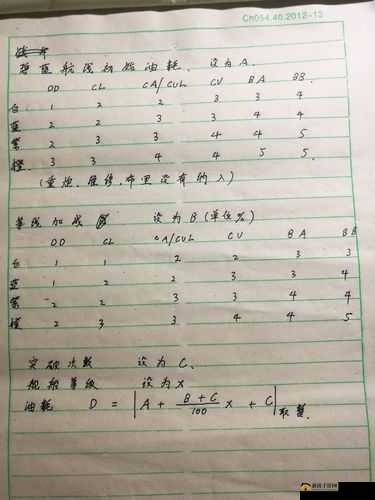 CM054.40.2012-13
碧蓝航线初始油耗. 设为A.
DD CL CA/CUL CV BA BB.
白 1 2 2 3 3 4
蓝 2 2 3 3 4 4
紫 2 3 3 4 4 5
橙. 3 3 4 4 5 5.
(重炮、维修、布里没有纳入)
等级加成 设为B(单位%)
DD CL CA/CUL CV BA BB
白 1 1 2 2 3 3
蓝 1 2 2 3 3 4
紫 2 2 3 3 4 4
橙 2 3 3 4 4 5
突破次数 设为C.
舰船等级 设为X
油耗 D = |A + B+C/100 X + C|取整.